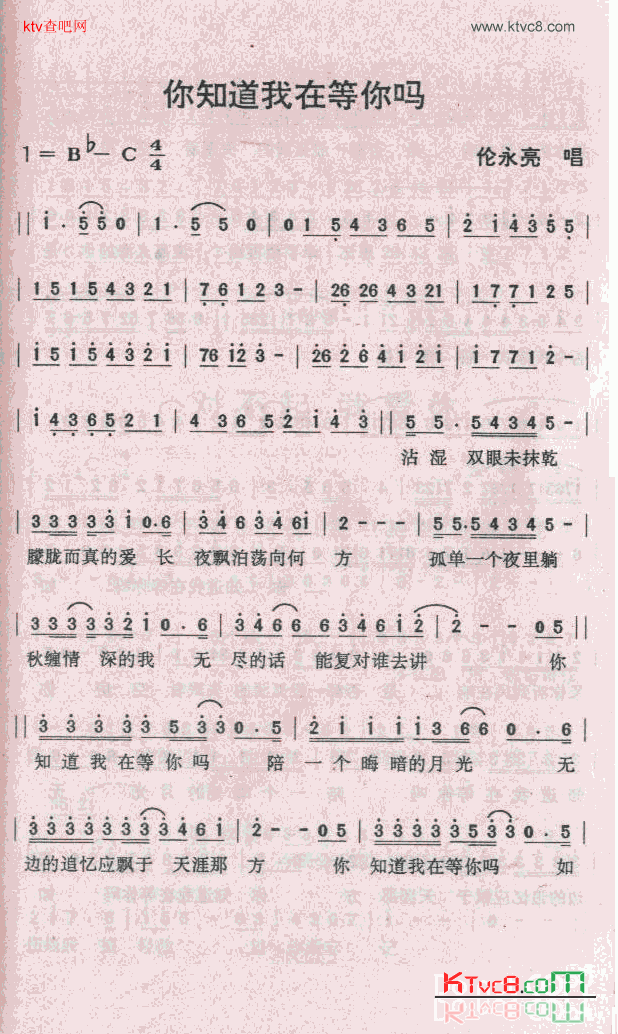 ktv查吧网 www.ktvc8.com
你知道我在等你吗
1 = B♭ — C 4/4 伦永亮 唱
|| i · 5 5 0 | 1 · 5 5 0 | 0 1 5 4 3 6 5 | 2 1 4 3 5 5 |
| 1 5 1 5 4 3 2 1 | 7 6 1 2 3 – | 26 26 4 3 21 | 1 7 7 1 2 5 |
| 1 5 1 5 4 3 2 1 | 76 12 3 – | 26 2 6 4 1 2 1 | 1 7 7 1 2 – |
| 1 4 3 6 5 2 1 | 4 3 6 5 2 1 4 3 || 5 5 · 5 4 3 4 5 – |
沾 湿 双眼未抹乾
| 3 3 3 3 3 1 0 · 6 | 3 4 6 3 4 6i | 2 – – – | 5 5 · 5 4 3 4 5 – |
朦胧而真的爱 长 夜飘泊荡向何 方 孤单一个夜里躺
| 3 3 3 3 3 2 1 0 · 6 | 3 4 6 6 6 3 4 6 1 2 | 2 – – 0 5 ||
秋缠情 深的我 无 尽的话 能复对谁去讲 你
|| 3 3 3 3 3 5 3 3 0 · 5 | 2 1 1 1 1 3 6 6 0 · 6 |
知 道 我 在等你吗 陪 一个 晦 暗的月光 无
| 3 3 3 3 3 3 3 3 4 6 i | 2 – – 0 5 | 3 3 3 3 3 5 3 3 0 · 5 |
边的道忆应飘于 天涯那 方 你 知道我在等你吗 如
KTvc8.com